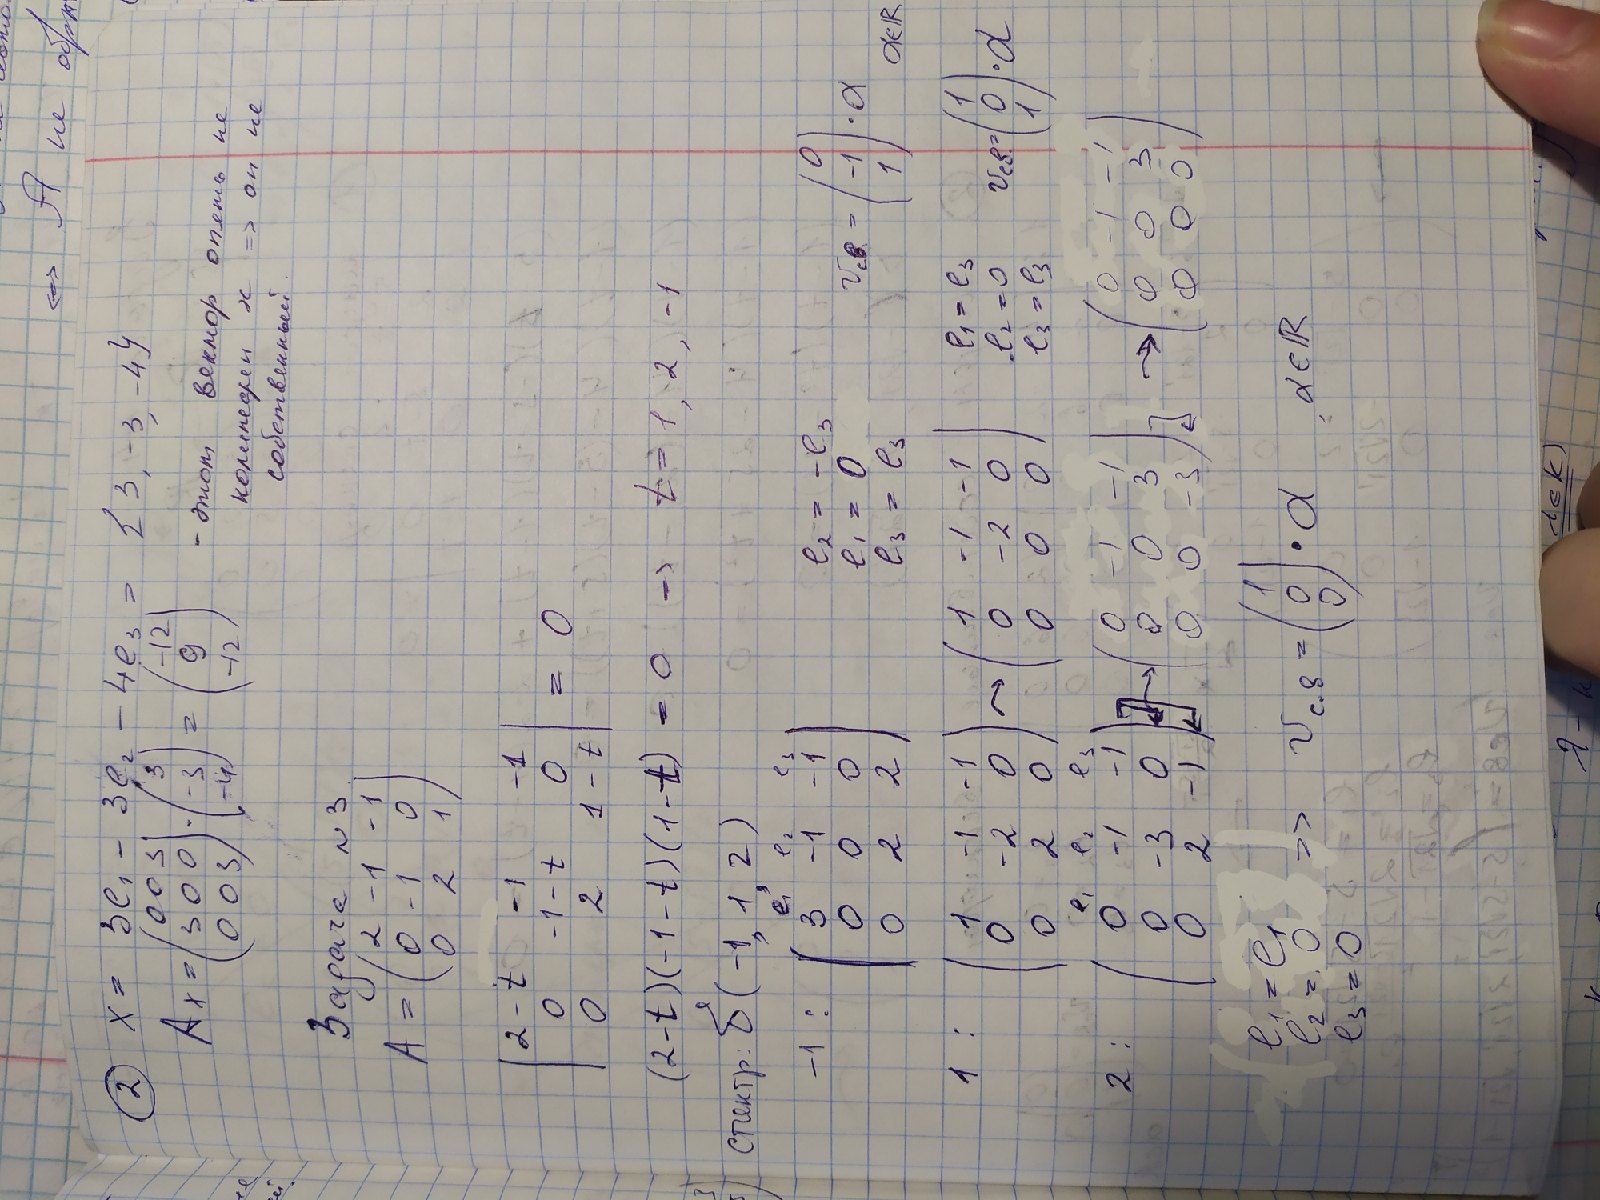 ⇔ A не обра
② x = 3e₁ - 3e₂ - 4e₃ = {3, -3, -4}
Ax = (0 0 3; 3 0 0; 0 0 3) · (3; -3; -4) = (-12; 9; -12)
- этот вектор опять не
коллинеарен x => он не
собственный.
Задача №3.
A = (2 -1 -1; 0 -1 0; 0 2 1)
|2-t -1 -1; 0 -1-t 0; 0 2 1-t| = 0
(2-t)(-1-t)(1-t) = 0 → t = 1, 2, -1
спектр: σ(-1, 1, 2)
e₁ e₂ e₃
-1 : (3 -1 -1; 0 0 0; 0 2 2)
e₂ = -e₃
e₁ = 0
e₃ = e₃
Vс.в. = (0; -1; 1) · α
α∈ℝ
1 : (1 -1 -1; 0 -2 0; 0 2 0) ~> (1 -1 -1; 0 -2 0; 0 0 0)
e₁ = e₃
e₂ = 0
e₃ = e₃
Vс.в. = (1; 0; 1) · α
e₁ e₂ e₃
2 : (0 -1 -1; 0 -3 0; 0 2 -1) ~> (0 -1 -1; 0 0 3; 0 0 -3) ~> (0 -1 -1; 0 0 3; 0 0 0)
e₁ = e₁
e₂ = 0
e₃ = 0
=> Vс.в = (1; 0; 0) · α , α∈ℝ